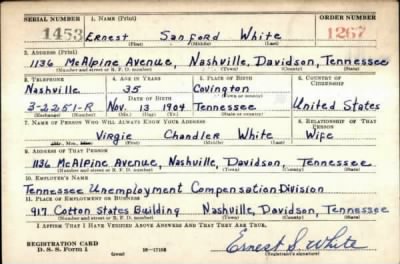 SERIAL NUMBER 1. NAME (Print) ORDER NUMBER
1453 Ernest Sanford White 1267
(First) (Middle) (Last)
2. ADDRESS (Print)
1136 McAlpine Avenue, Nashville, Davidson, Tennessee
(Number and street or R. F. D. number) (Town) (County) (State)
3. TELEPHONE 4. AGE IN YEARS 5. PLACE OF BIRTH 6. COUNTRY OF CITIZENSHIP
Nashville 35 Covington
DATE OF BIRTH (Town or county)
3-2251-R Nov. 13 1904 Tennessee United States
(Exchange) (Number) (Mo.) (Day) (Yr.) (State or country)
7. NAME OF PERSON WHO WILL ALWAYS KNOW YOUR ADDRESS 8. RELATIONSHIP OF THAT PERSON
Virgie Chandler White Wife
(Mr., Mrs., Miss) (First) (Middle) (Last)
9. ADDRESS OF THAT PERSON
1136 McAlpine Avenue, Nashville, Davidson, Tennessee
(Number and street or R. F. D. number) (Town) (County) (State)
10. EMPLOYER'S NAME
Tennessee Unemployment Compensation Division
11. PLACE OF EMPLOYMENT OR BUSINESS
917 Cotton States Building Nashville, Davidson, Tennessee
(Number and street or R. F. D. number) (Town) (County) (State)
I AFFIRM THAT I HAVE VERIFIED ABOVE ANSWERS AND THAT THEY ARE TRUE.
REGISTRATION CARD
D. S. S. Form 1 16-17105 Ernest S. White
(over) (Registrant's signature)